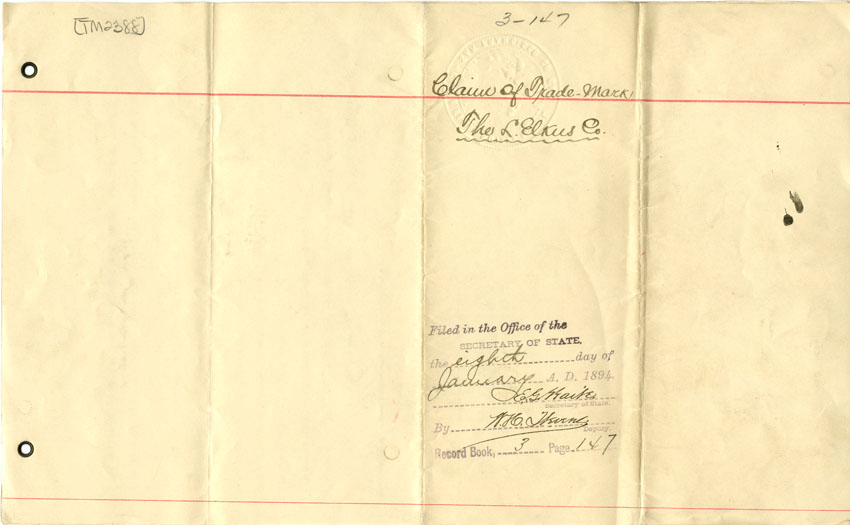 [TM2388]
3-147
Claim of Trade-Mark,
The L. Elkus Co.
Filed in the Office of the
SECRETARY OF STATE,
the eighth day of
January A. D. 1894
E.G. Waite
Secretary of State.
By
Deputy.
Record Book, 3 Page 147